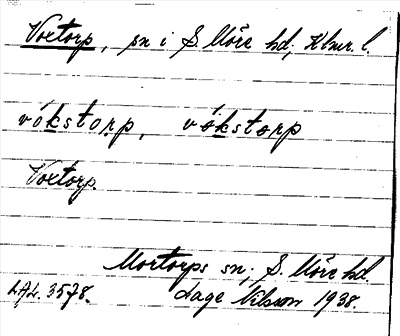 Voxtorp, sn i S. Möre hd, Klmr. l.
vókstorp, vókstorp
Voxtorp.
Mortorps sn, S. Möre hd.
LAL. 3578. Lage Nilsson 1938.